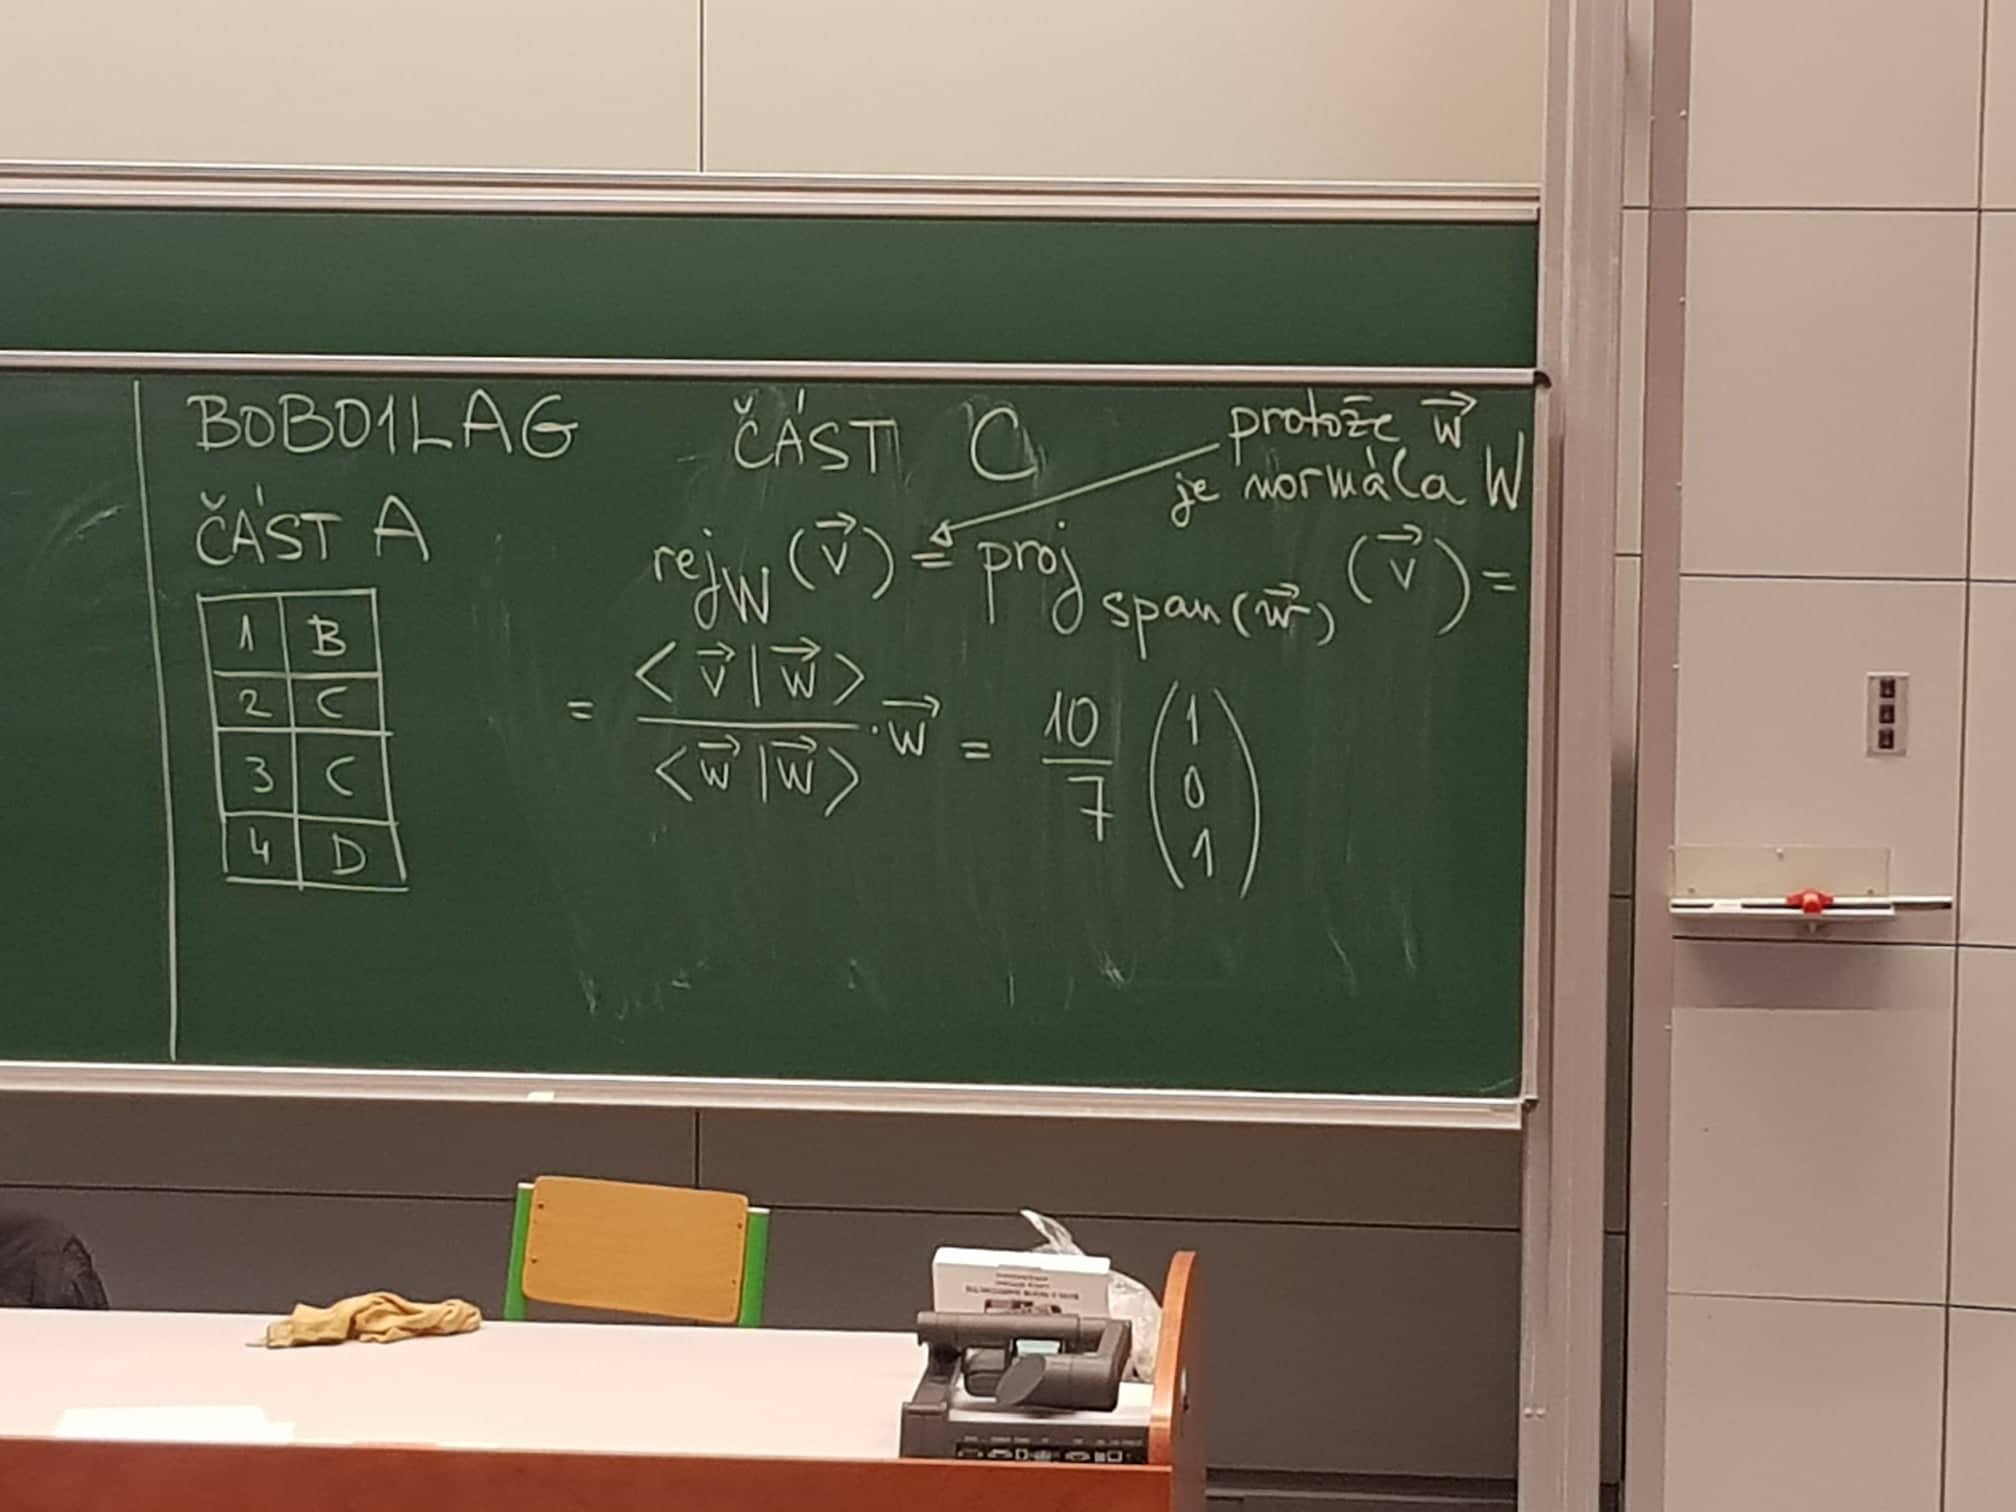 B0B01LAG
ČÁST A
1 B
2 C
3 C
4 D
ČÁST C
protože w⃗
je normála W
rej_W (v⃗) = proj_span(w⃗) (v⃗) =
= <v⃗|w⃗> / <w⃗|w⃗> · w⃗ = 10/7 (1 0 1)